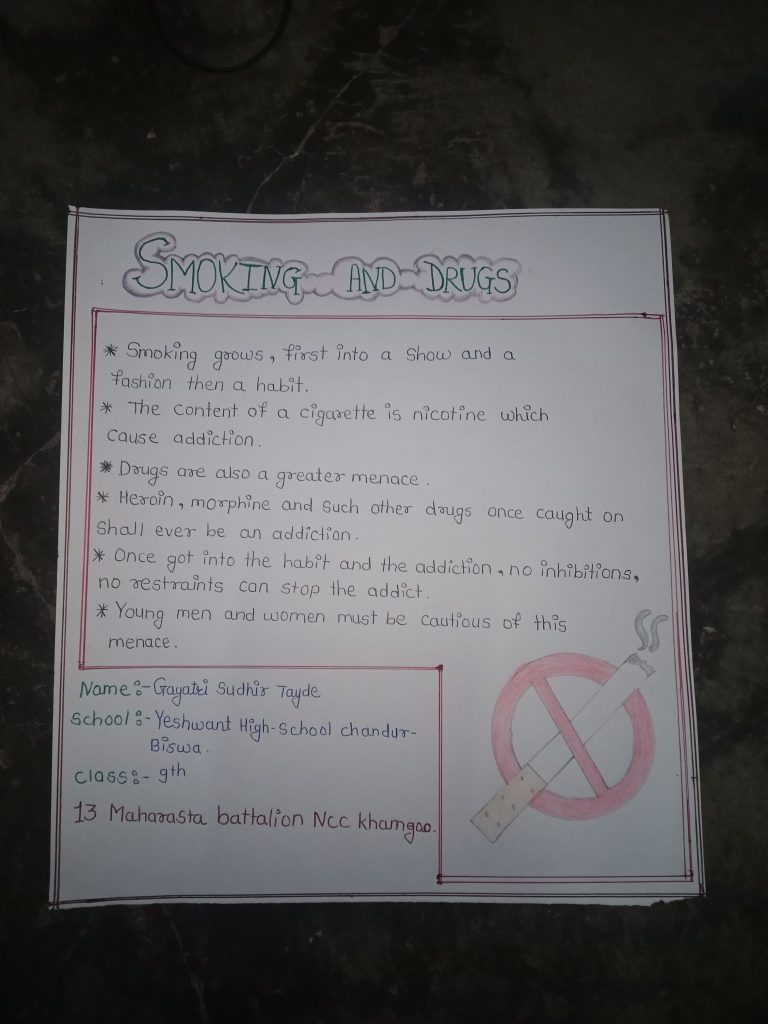 SMOKING AND DRUGS
* Smoking grows, first into a show and a
fashion then a habit.
* The content of a cigarette is nicotine which
cause addiction.
* Drugs are also a greater menace.
* Heroin, morphine and such other drugs once caught on
shall ever be an addiction.
* Once got into the habit and the addiction, no inhibitions,
no restraints can stop the addict.
* Young men and women must be cautious of this
menace.
Name:- Gayatri Sudhir Tayde
School:- Yeshwant High-School chandur-
Biswa.
Class:- 9th
13 Maharasta battalion Ncc khamgao.